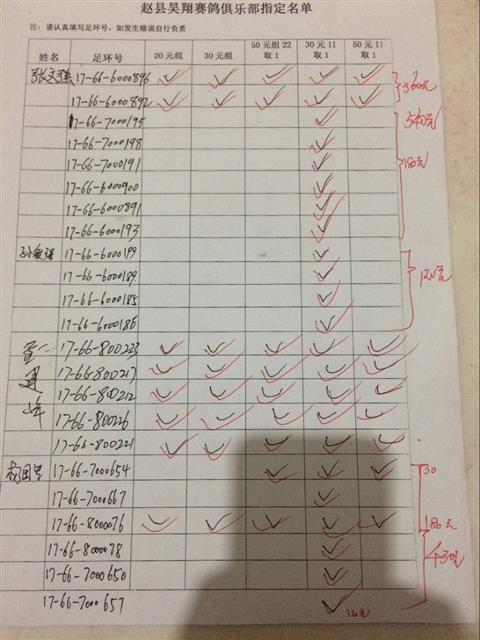 赵县昊翔赛鸽俱乐部指定名单
注：请认真填写足环号，如发生错误自行负责
姓名 足环号 20元组 30元组 50元组22取1 30元11取1 50元11取1
张文强 17-66-6000896 ✓ ✓ ✓ ✓ ✓
17-66-6000892 ✓ ✓ ✓ ✓ ✓ 360元
17-66-7000195 ✓ 540元
17-66-7000198 ✓
17-66-7000191 ✓ 180元
17-66-6000900 ✓
17-66-6000891 ✓
17-66-6000193 ✓
17-66-6000199 ✓
17-66-6000189 ✓ 120元
17-66-6000185 ✓
17-66-6000186 ✓
17-66-800223 ✓ ✓ ✓ ✓ ✓
17-66-800217 ✓ ✓ ✓ ✓ ✓
17-66-800212 ✓ ✓ ✓ ✓ ✓
17-66-800226 ✓ ✓ ✓ ✓ ✓
17-66-800221 ✓ ✓ ✓ ✓ ✓
17-66-7000654 ✓ ✓ ✓ 30
17-66-7000667 ✓
17-66-8000076 ✓ ✓ ✓ ✓ ✓ 180元
17-66-8000078 ✓
17-66-7000650 ✓
17-66-7000657 ✓